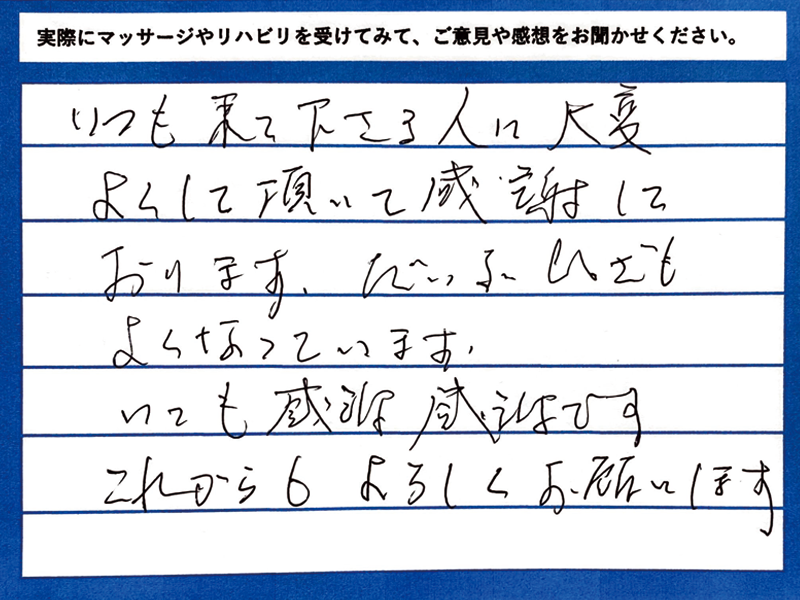 実際にマッサージやリハビリを受けてみて、ご意見や感想をお聞かせください。
いつも来て下さる人に大変
よくして頂いて感謝して
おります、だいぶひざも
よくなっています、
いつも感謝感謝です
これからもよろしくお願いします